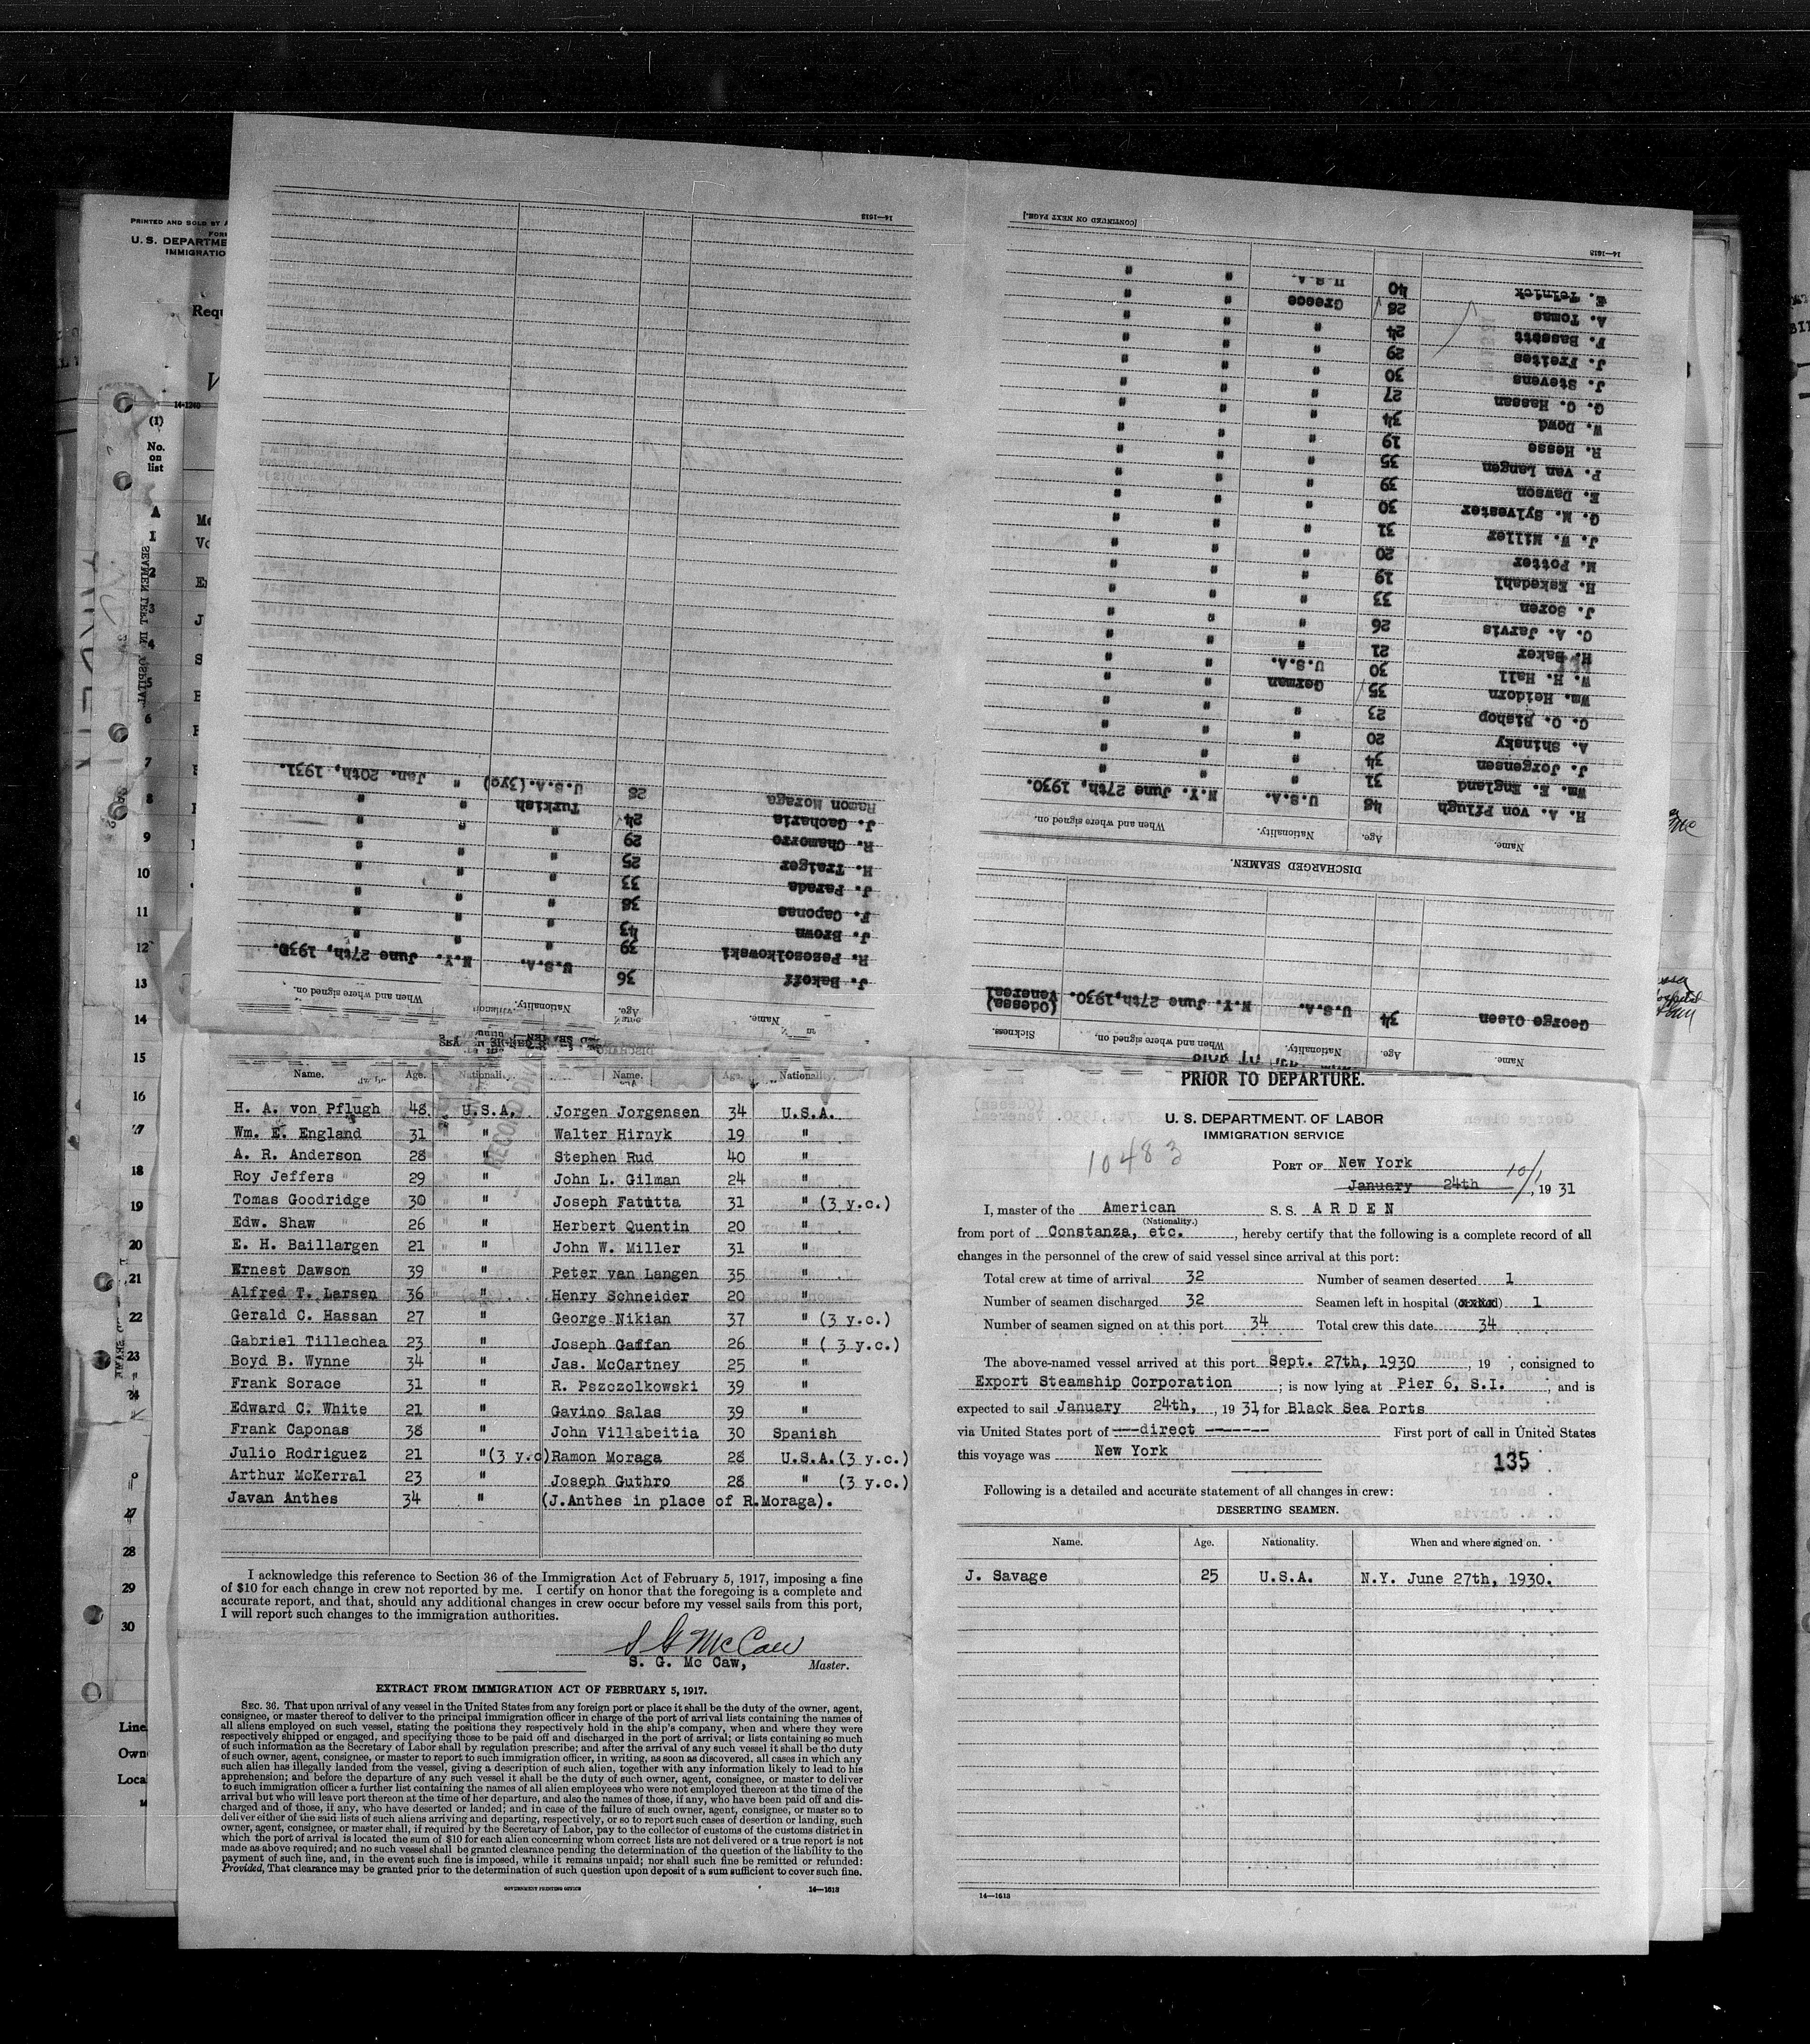 PRIOR TO DEPARTURE.
U. S. DEPARTMENT OF LABOR
IMMIGRATION SERVICE
10483
PORT OF New York
January 24th 10/1, 1931
I, master of the American S. S. ARDEN
(Nationality.)
from port of Constanza, etc., hereby certify that the following is a complete record of all
changes in the personnel of the crew of said vessel since arrival at this port:
Total crew at time of arrival 32 Number of seamen deserted 1
Number of seamen discharged 32 Seamen left in hospital 1
Number of seamen signed on at this port 34 Total crew this date 34
The above-named vessel arrived at this port Sept. 27th, 1930, 19 , consigned to
Export Steamship Corporation; is now lying at Pier 6, S.I., and is
expected to sail January 24th, 1931, for Black Sea Ports
via United States port of ---direct ------- First port of call in United States
this voyage was New York
135
Following is a detailed and accurate statement of all changes in crew:
DESERTING SEAMEN.
Name. Age. Nationality. When and where signed on.
J. Savage 25 U.S.A. N.Y. June 27th, 1930.
14—1613
Name. Age. Nationality. When and where signed on. Sickness.
George Olsen 34 U.S.A. N.Y. June 27th, 1930. (Odessa) Venereal
DISCHARGED SEAMEN.
Name. Age. Nationality. When and where signed on.
H. A. von Pflugh 48 U.S.A. N.Y. June 27th, 1930.
Wm. E. England 31 " " "
J. Jorgensen 34 " " "
A. Shinsky 20 " " "
C. O. Bishop 23 " " "
Wm. Heidorn 35 German " "
W. H. Hall 30 U.S.A. " "
H. Baker 21 " " "
C. A. Jarvis 26 " " "
J. Soren 33 " " "
H. Eskedahl 19 " " "
M. Potter 20 " " "
J. W. Miller 31 " " "
G. M. Sylvester 30 " " "
E. Dawson 39 " " "
P. Van Langen 35 " " "
R. Hesse 19 " " "
W. Dowd 34 " " "
G. C. Hassan 27 " " "
J. Stevens 30 " " "
J. Freites 29 " " "
F. Bassett 24 " " "
A. Tomas 28 Greece " "
E. Telnick 40 U.S.A. " "
14—1613
[CONTINUED ON NEXT PAGE.]
Name. Age. Nationality. When and where signed on.
J. Bakoff 36 U.S.A. N.Y. June 27th, 1930.
R. Pszczolkowski 39 " " "
J. Brown 43 " " "
F. Caponas 38 " " "
J. Parada 33 " " "
H. Traiger 25 " " "
R. Chamorro 29 " " "
J. Gacharia 24 Turkish " "
Ramon Moraga 28 U.S.A.(3yc) " Jan. 20th, 1931.
14—1613
Name. Age. Nationality. Name. Age. Nationality.
H. A. von Pflugh 48 U.S.A. Jorgen Jorgensen 34 U.S.A.
Wm. E. England 31 " Walter Hirnyk 19 "
A. R. Anderson 28 " Stephen Rud 40 "
Roy Jeffers 29 " John L. Gilman 24 "
Tomas Goodridge 30 " Joseph Fatutta 31 " (3 y.c.)
Edw. Shaw 26 " Herbert Quentin 20 "
E. H. Baillargen 21 " John W. Miller 31 "
Ernest Dawson 39 " Peter van Langen 35 "
Alfred T. Larsen 36 " Henry Schneider 20 "
Gerald C. Hassan 27 " George Nikian 37 " (3 y.c.)
Gabriel Tillechea 23 " Joseph Gaffan 26 " ( 3 y.c.)
Boyd B. Wynne 34 " Jas. McCartney 25 "
Frank Sorace 31 " R. Pszczolkowski 39 "
Edward C. White 21 " Gavino Salas 39 "
Frank Caponas 38 " John Villabeitia 30 Spanish
Julio Rodriguez 21 "(3 y.c) Ramon Moraga 28 U.S.A.(3 y.c.)
Arthur McKerral 23 " Joseph Guthro 28 " (3 y.c.)
Javan Anthes 34 " (J.Anthes in place of R.Moraga).
I acknowledge this reference to Section 36 of the Immigration Act of February 5, 1917, imposing a fine
of $10 for each change in crew not reported by me. I certify on honor that the foregoing is a complete and
accurate report, and that, should any additional changes in crew occur before my vessel sails from this port,
I will report such changes to the immigration authorities.
S G McCaw
S. G. Mc Caw, Master.
EXTRACT FROM IMMIGRATION ACT OF FEBRUARY 5, 1917.
SEC. 36. That upon arrival of any vessel in the United States from any foreign port or place it shall be the duty of the owner, agent,
consignee, or master thereof to deliver to the principal immigration officer in charge of the port of arrival lists containing the names of
all aliens employed on such vessel, stating the positions they respectively hold in the ship's company, when and where they were
respectively shipped or engaged, and specifying those to be paid off and discharged in the port of arrival; or lists containing so much
of such information as the Secretary of Labor shall by regulation prescribe; and after the arrival of any such vessel it shall be the duty
of such owner, agent, consignee, or master to report to such immigration officer, in writing, as soon as discovered, all cases in which any
such alien has illegally landed from the vessel, giving a description of such alien, together with any information likely to lead to his
apprehension; and before the departure of any such vessel it shall be the duty of such owner, agent, consignee, or master to deliver
to such immigration officer a further list containing the names of all alien employees who were not employed thereon at the time of the
arrival but who will leave port thereon at the time of her departure, and also the names of those, if any, who have been paid off and dis-
charged and of those, if any, who have deserted or landed; and in case of the failure of such owner, agent, consignee, or master so to
deliver either of the said lists of such aliens arriving and departing, respectively, or so to report such cases of desertion or landing, such
owner, agent, consignee, or master shall, if required by the Secretary of Labor, pay to the collector of customs of the customs district in
which the port of arrival is located the sum of $10 for each alien concerning whom correct lists are not delivered or a true report is not
made as above required; and no such vessel shall be granted clearance pending the determination of the question of the liability to the
payment of such fine, and, in the event such fine is imposed, while it remains unpaid; nor shall such fine be remitted or refunded:
Provided, That clearance may be granted prior to the determination of such question upon deposit of a sum sufficient to cover such fine.
GOVERNMENT PRINTING OFFICE 14—1613
PRINTED AND SOLD BY
U. S. DEPARTME
IMMIGRATIO
Requ
14-1240
(1)
No.
on
list
A
1
2
3
4
5
6
7
8
9
10
11
12
13
14
15
16
17
18
19
20
21
22
23
24
27
28
29
30
SEAMEN LEFT IN HOSPITAL
Line
Own
Loca